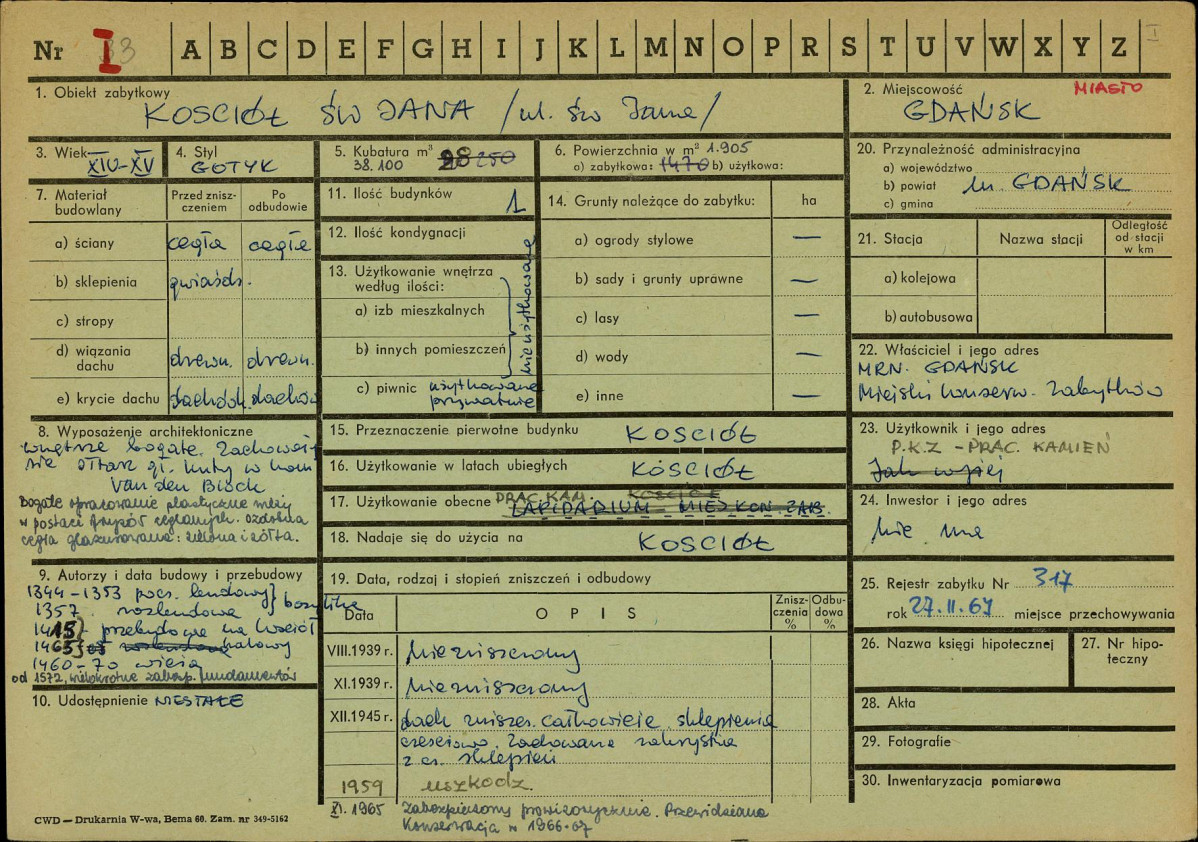 Nr I 33 A B C D E F G H I J K L M N O P R S T U V W X Y Z I
1. Obiekt zabytkowy
KOSCIÓŁ ŚW JANA /ul. św Jana/
2. Miejscowość MIASTO
GDAŃSK
3. Wiek XIV-XV
4. Styl
GOTYK
5. Kubatura m³ 28 250
38.100
6. Powierzchnia w m² 1.905
a) zabytkowa: 1470 b) użytkowa:
20. Przynależność administracyjna
a) województwo
b) powiat m. GDAŃSK
c) gmina
7. Materiał budowlany
Przed zniszczeniem
Po odbudowie
a) ściany cegła cegła
b) sklepienia gwiaźdz.
c) stropy
d) wiązania dachu drewn. drewn.
e) krycie dachu dachówk. dachów
11. Ilość budynków 1
12. Ilość kondygnacji
13. Użytkowanie wnętrza
według ilości:
a) izb mieszkalnych
b) innych pomieszczeń
nieużytkowane
c) piwnic użytkowane
prywatnie
14. Grunty należące do zabytku: ha
a) ogrody stylowe —
b) sady i grunty uprawne —
c) lasy —
d) wody —
e) inne —
21. Stacja Nazwa stacji
Odległość
od stacji
w km
a) kolejowa
b) autobusowa
22. Właściciel i jego adres
MRN. GDAŃSK
Miejski konserw. Zabytków
8. Wyposażenie architektoniczne
wnętrze bogate. Zachował
się ołtarz gł. kuty w kam
Van den Block
Bogate opracowanie plastyczne
w postaci fryzów ceglanych. ozdobna
cegła glazurowana: zielona i żółta.
15. Przeznaczenie pierwotne budynku KOSCIÓŁ
16. Użytkowanie w latach ubiegłych KOSCIÓŁ
17. Użytkowanie obecne PRAC. KAM. KOSCIÓŁ
LAPIDARIUM MIEJ KON. ZAB.
18. Nadaje się do użycia na KOSCIÓŁ
23. Użytkownik i jego adres
P.K.Z - PRAC. KAMIEŃ
Jak wyżej
24. Inwestor i jego adres
nie ma
25. Rejestr zabytku Nr 317
rok 27.II.67 miejsce przechowywania
9. Autorzy i data budowy i przebudowy
1344-1353 pocz. budowy
1357 rozbudowa } bazylika
1415 przebudowa na kościół
1465 halowy
1460-70 wieża
od 1572, wielokrotne zabezp. fundamentów
10. Udostępnienie NIESTAŁE
19. Data, rodzaj i stopień zniszczeń i odbudowy
Data OPIS
Zniszczenia %
Odbudowa %
VIII.1939 r. niezniszczony
XI.1939 r. niezniszczony
XII.1945 r. dach zniszcz. całkowicie, sklepienia
częściowo. Zachowana zakrystia
z cz. sklepień
1959 uszkodz.
XI. 1965 Zabezpieczony prowizorycznie. Przewidziana
Konserwacja w 1966-67
26. Nazwa księgi hipotecznej
27. Nr hipoteczny
28. Akta
29. Fotografie
30. Inwentaryzacja pomiarowa
CWD — Drukarnia W-wa, Bema 60. Zam. nr 349-5162